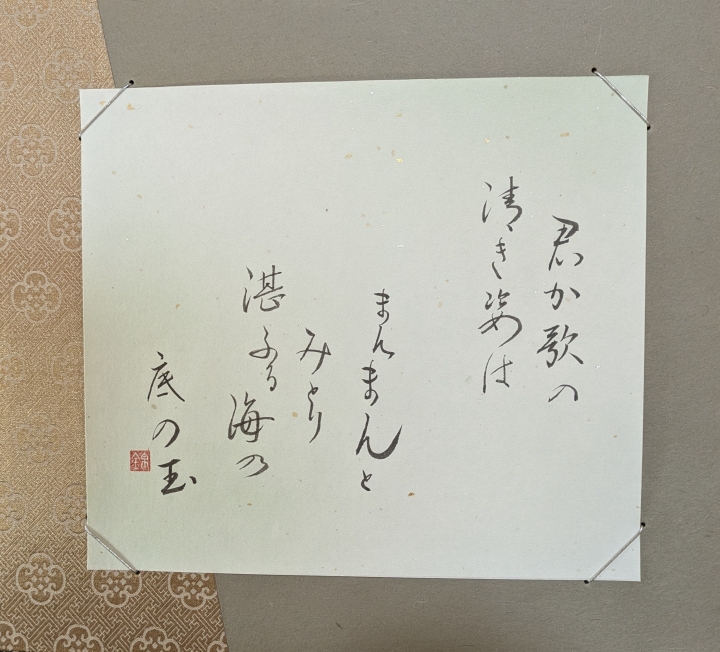 君か歌の
清き姿は
まんまんと
みとり
湛ふる海の
底の玉